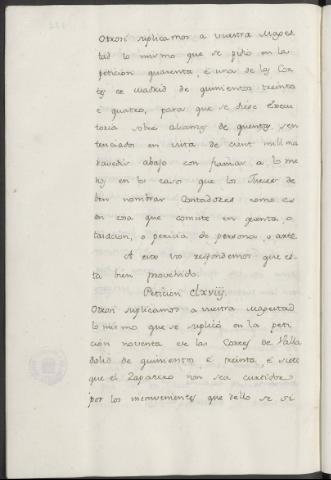 Otrosi suplicamos a vuestra Mages
tad lo mismo que se pidió en la
peticion quarenta, é una de las Cor
tes de Madrid de quinientos treinta
é quatro, para que se diese Execu
toria sobre alcances de quentas sen
tenciado en vista de cient mill ma
ravedis abajo con fianzas a lo me
nos en los casos que los Jueces de
ben nombrar Contadores como es
en cosa que consiste en quenta, o
tasacion, o pericia de persona, o arte.
A esto vos respondemos que es
ta bien provehido.
Peticion clxviij.
Otrosi suplicamos a vuestra Magestad
lo mismo que se suplicó en la peti
cion noventa de las Cortes de Valla
dolid de quinientos é treinta, é siete
que el Zapatero non sea curtidor
por los inconvenientes que dello se si